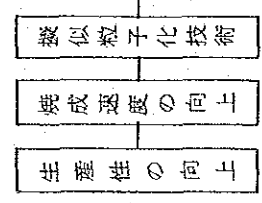 擬似粒子化技術
焼成速度の向上
生産性の向上